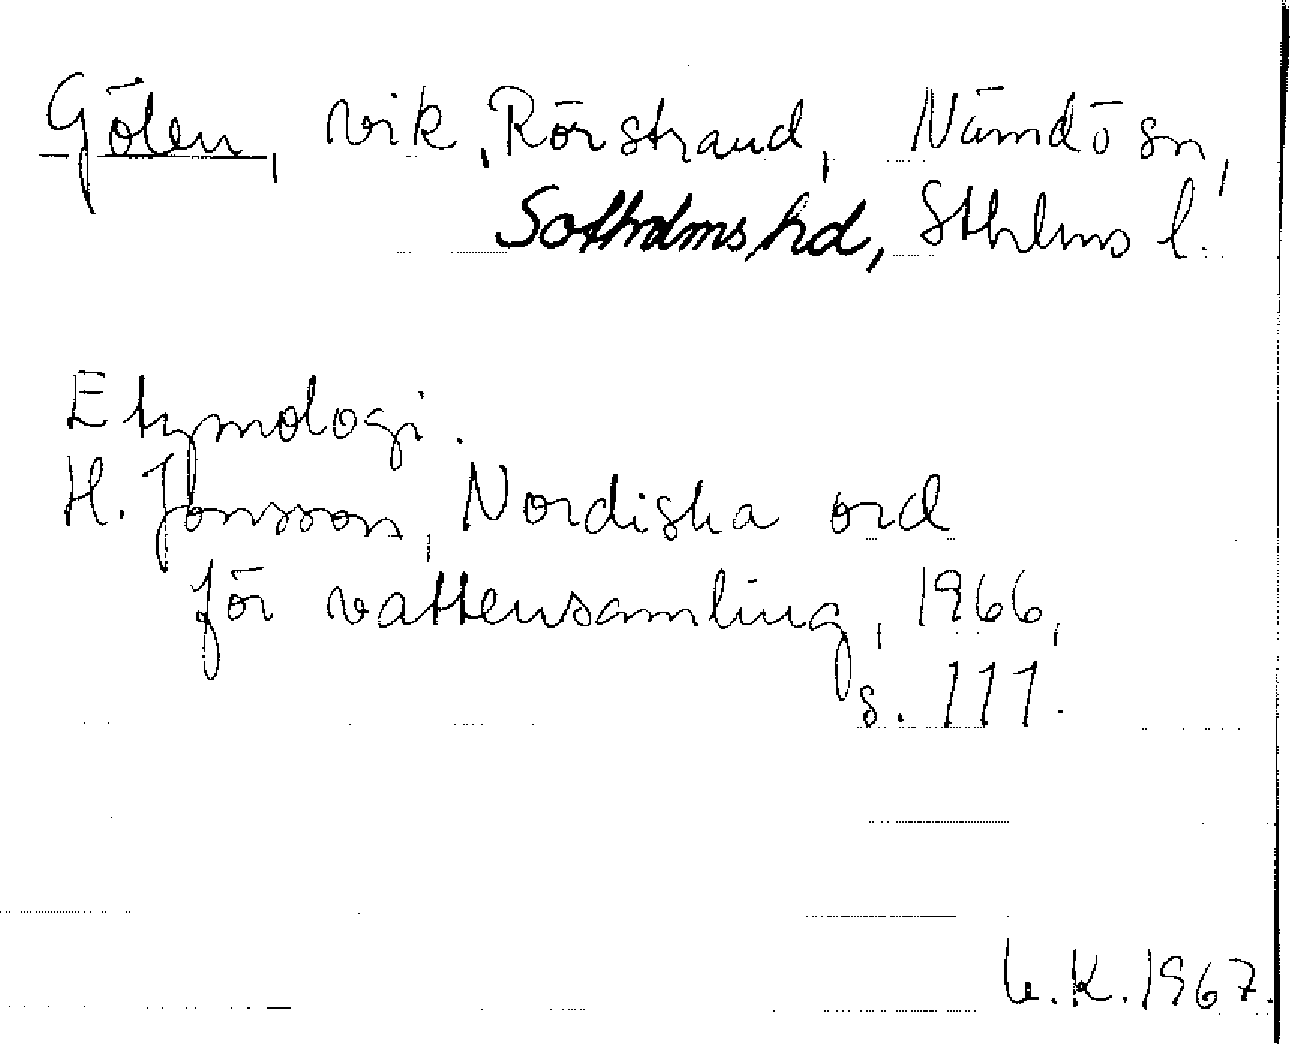 Gölen, vik, Rörstrand, Nämdö sn,
Sotholms hd, Sthlms l.
Etymologi.
H. Jonsson, Nordiska ord
för vattensamling, 1966,
s. 111.
U.K. 1967.